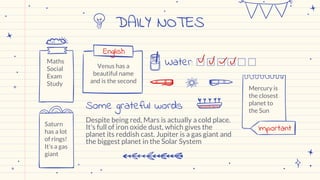 DAILY NOTES
Maths
Social
Exam
Study
English
Venus has a
beautiful name
and is the second
Water
Mercury is
the closest
planet to
the Sun
Important
Saturn
has a lot
of rings!
It's a gas
giant
Some grateful words
Despite being red, Mars is actually a cold place.
It's full of iron oxide dust, which gives the
planet its reddish cast. Jupiter is a gas giant and
the biggest planet in the Solar System